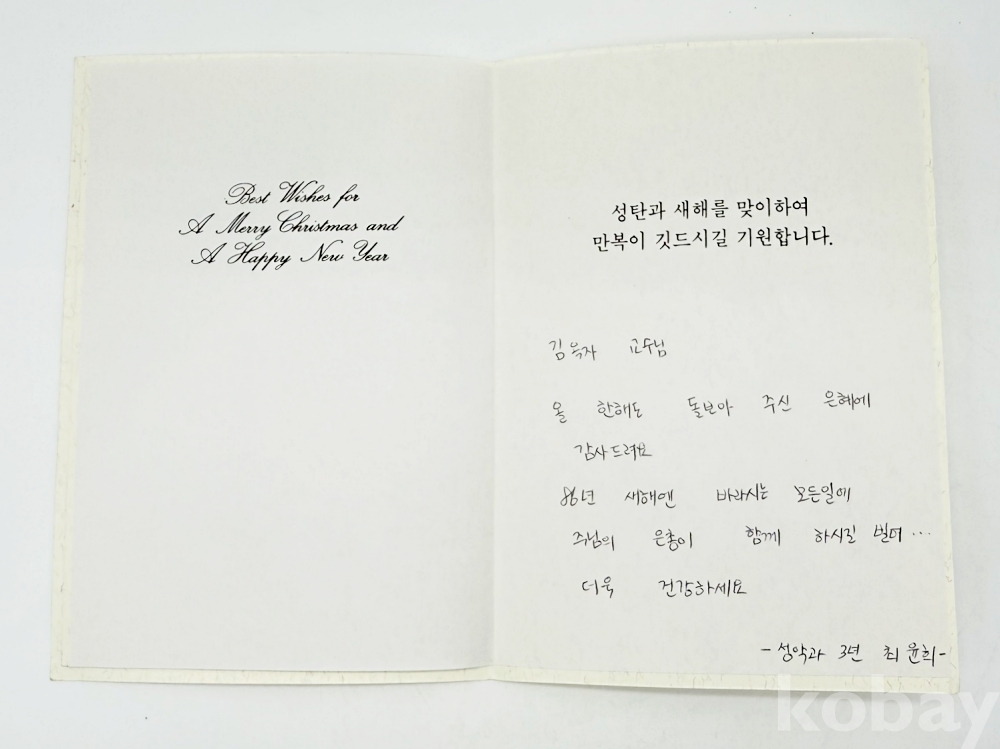 Best Wishes for
A Merry Christmas and
A Happy New Year
성탄과 새해를 맞이하여
만복이 깃드시길 기원합니다.
김옥자 교수님
올 한해도 돌보아 주신 은혜에
감사드려요
86년 새해엔 바라시는 모든일에
주님의 은총이 함께 하시길 빌며…
더욱 건강하세요
-성악과 3년 최윤희-
kobay